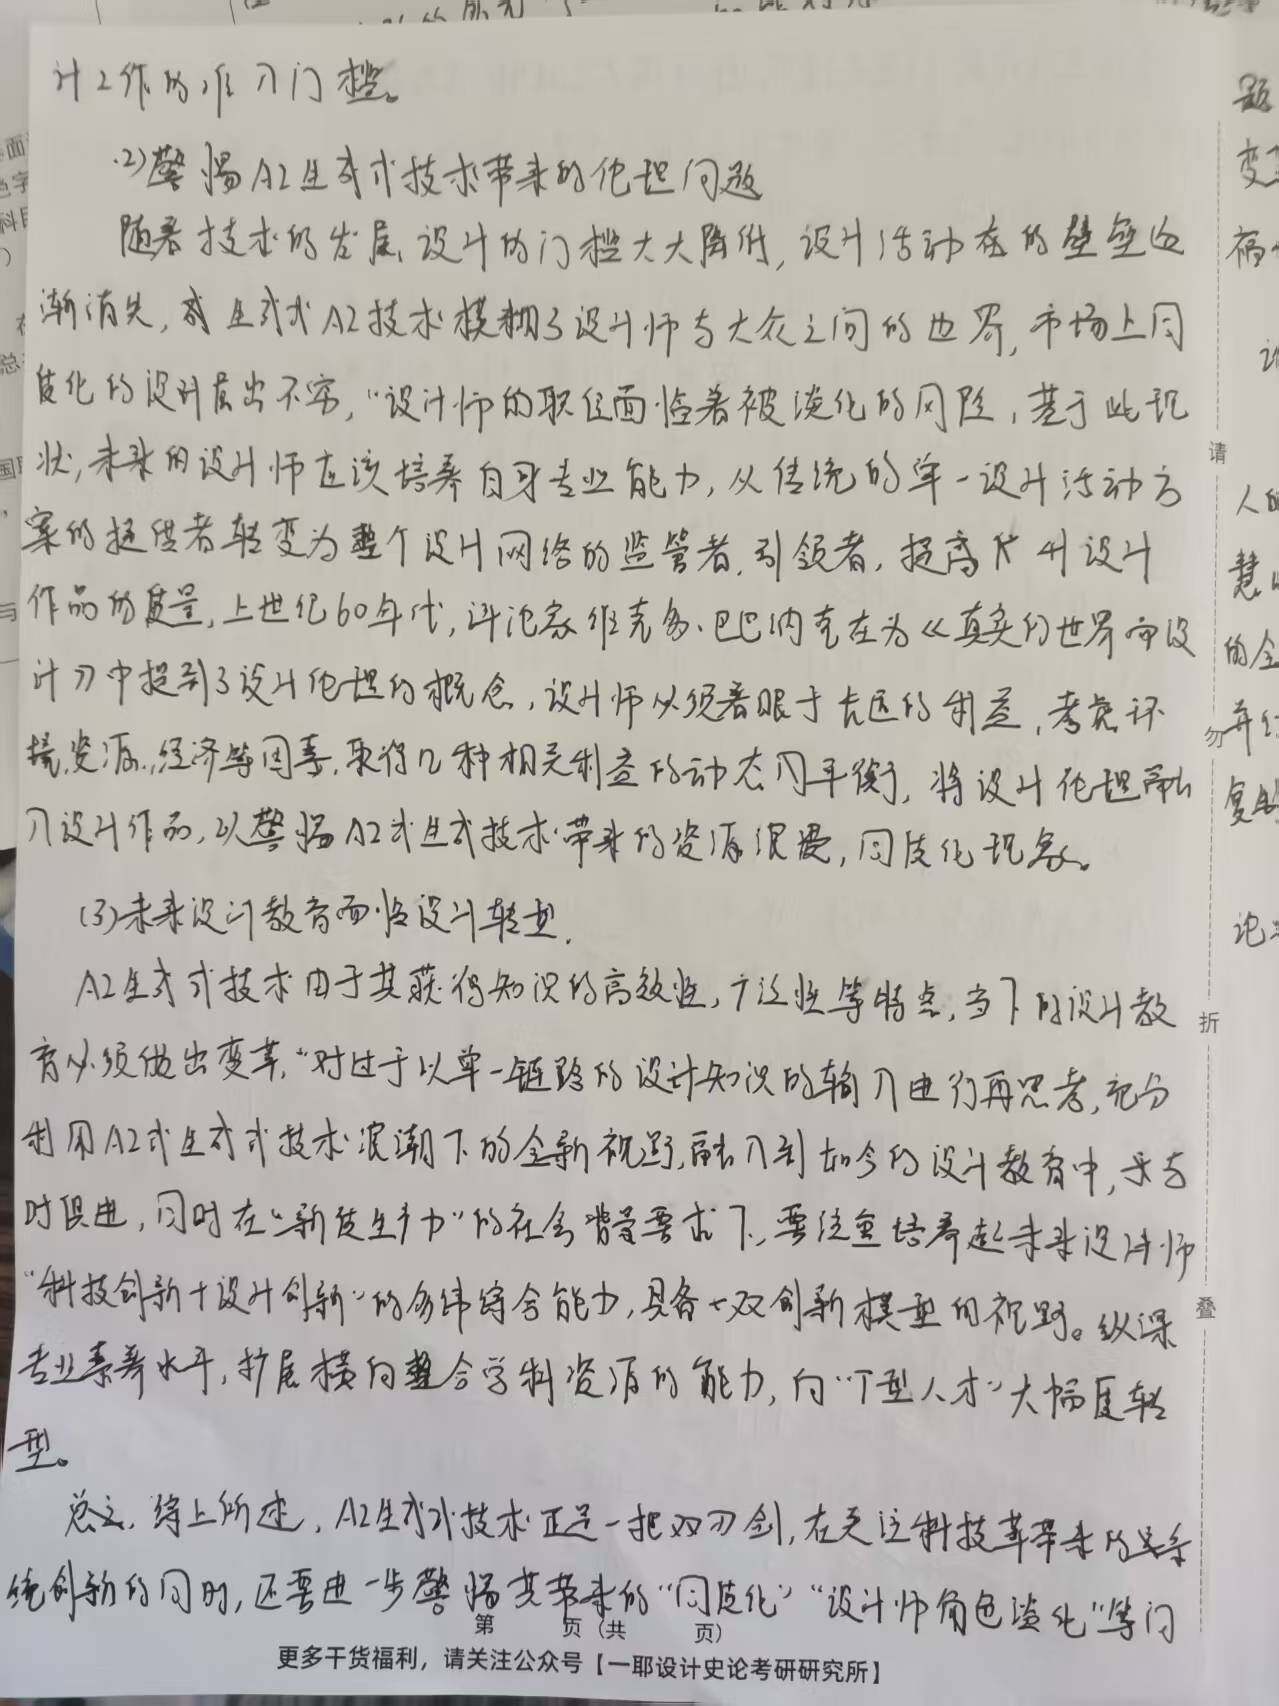 计工作的准入门槛。
(2)警惕AI生成式技术带来的伦理问题
随着技术的发展,设计的门槛大大降低,设计活动在的壁垒逐
渐消失,生成式AI技术模糊了设计师与大众之间的边界,市场上同
质化的设计层出不穷,“设计师的职位面临着被淡化的风险,基于此现
状,未来的设计师应该培养自身专业能力,从传统的单一设计活动方
案的提供者转变为整个设计网络的监管者,引领者,提高设计
作品的质量,上世纪60年代,评论家维克多·巴巴纳克在为《真实的世界而设
计》中提到了设计伦理的概念,设计师必须着眼于长远的利益,考虑环
境,资源,经济等因素,取得几种相关利益的动态平衡,将设计伦理融
入设计作品,以警惕AI式生式技术带来的资源浪费,同质化现象。
(3)未来设计教育面临设计转型.
AI生成式技术由于其获得知识的高效性,广泛性等特点,当下的设计教
育必须做出变革,“对过于以单一链路的设计知识的输入进行再思考,充分
利用AI式生成式技术浪潮下的全新视野,融入到如今的设计教育中,与
时俱进,同时在“新质生产力”的社会背景要求下,要注重培养起未来设计师
“科技创新+设计创新”的多维综合能力,具备双创新模型的视野。纵深
专业素养水平,扩展横向整合学科资源的能力,向“T型人才”大幅度转
型。
总之,综上所述,AI生成式技术正是一把双刃剑,在关注科技革带来的
创新的同时,还要进一步警惕其带来的“同质化”“设计师角色淡化”等问
第 页(共 页)
更多干货福利,请关注公众号【一耶设计史论考研研究所】
请
勿
折
叠